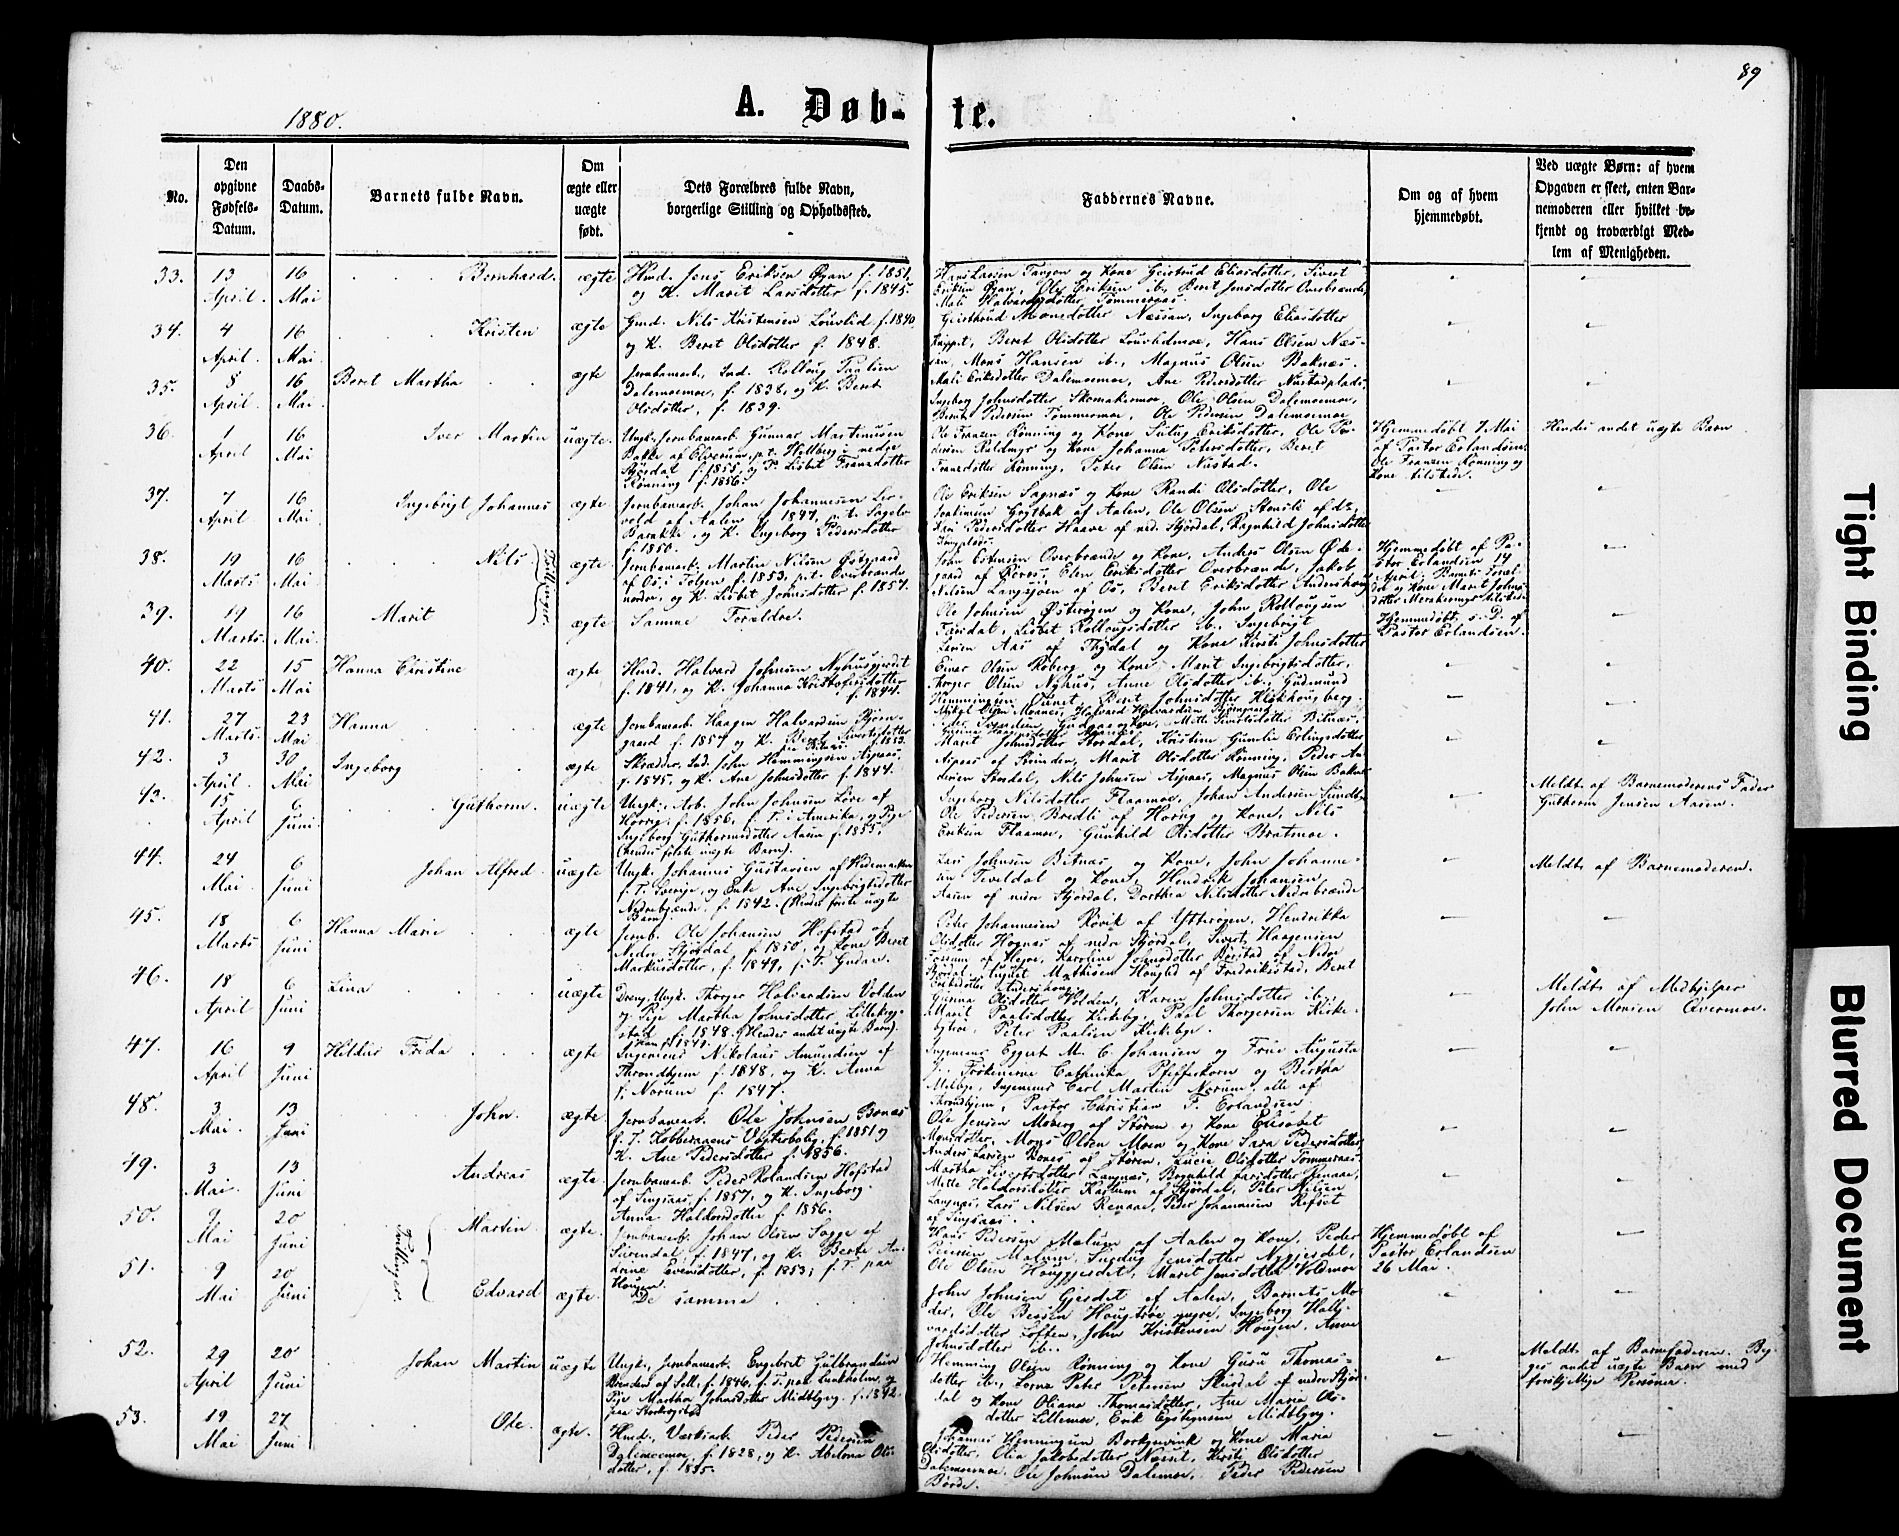 89
1880.
A. Døb-
te.
No.
Den
opgivne
Fødsels-
Datum.
Daabs-
Datum.
Barnets fulde Navn.
Om
ægte eller
uægte
født.
Dets Forældres fulde Navn,
borgerlige Stilling og Opholdssted.
Faddernes Navne.
Om og af hvem
hjemmedøbt.
Ved uægte Børn: af hvem
Opgaven er skeet, enten Bar-
nemoderen eller hvilket be-
kjendt og troværdigt Med-
lem af Menigheden.
33. 13 April. 16 Mai Bernhard. ægte
Hmd. Jens Eriksen Øyan f. 1851,
og K. Marit Larsdotter f. 1845.
Hans Larsen Tangen og Kone Geirtrud Eliasdotter, Sivert
Eriksen Øyan, Ole Eriksen ib., Beret Jensdotter Overbrænde,
Mali Halvardsdotter, Tømmernæs.
34. 4 April. 16 Mai. Kristen ægte
Gmd. Nils Kristensen Løuvlid f. 1840,
og K. Beret Olsdotter f. 1848.
Geirthrud Monsdotter Næssan, Ingeborg Eliasdotter
Beret Olsdotter Louvlidmoe, Hans Olsen Næs-
san, Mons Hansen ib., Magnus Olsen Baknæs.
35. 8 April. 16 Mai. Beret Martha ægte
Jernbanearb., Ind. Rolloug Paalsen
Dalemoemoe, f. 1838, og K. Beret
Olsdotter, f. 1839.
Mali Eriksdotter Dalemoemoe, Ane Pedersdotter Nustadplads.
Ingeborg Johnsdotter Skomakermoe, Ole Olsen Dalemoemoe,
Bernt Pedersen Tømmermoe, Ole Pedersen Dalemoemoe
36. 1 April 16 Mai Iver Martin uægte.
Ungk. Jernbanearb. Gunnar Martinusen
Bakke af Elverum, p.t. Hellberg i nedre
Stjørdal f. 1855, og P. Lisbet Fransdotter
Rønning f. 1856.
Ole Franzen Rønning og Kone Sulug Eriksdotter, Ole Pe-
dersen Kaldmyr og Kone Johanna Petersdotter, Beret
Fransdotter Rønning, Peter Olsen Nustad.
Hjemmedøbt 7 Mai
af Pastor Erlandsen.
Ole Franzen Rønning og
Kone tilstede.
Hendes andet uægte Barn
37. 7 April 16 Mai. Ingebrigt Johannes ægte
Jernbanearb. Johan Johannesen Ler-
vold af Aalen f. 1847, p.t. Sagelv
Barakke, og K. Ingeborg Pedersdotter
f. 1850.
Ole Eriksen Sagnæs og Kone Randi Olsdotter, Ole
Joakimsen Grytbak af Aalen, Ole Olsen Stensli af do,
Pedersdotter Haave af ned. Stjørdal, Ragnhild Johnsdotter
38. 19 Marts 16 Mai Nils ægte
Tvillinger
Jernbanearb. Martin Nilsen Østgaard
af Os i Tolgen f. 1853, p.t. Overbrænde
nordre, og K. Lisbet Johnsdotter f. 1857.
John Estensen Overbrænde og Kone, Anders Olsen Øde-
gaard af Røros, Elen Eriksdotter Overbrænde, Jakob
Nilsen Langsjøen af Os, Beret Eriksdotter Andershaug
Hjemmedøbt af Pa-
stor Erlandsen 14
April. Barnets Foræl-
dre og Kone Marit Johns-
dotter Merakermyr tilstede.
39. 19 Marts 16 Mai. Marit ægte
Samme Forældre.
Ole Johnsen Østerøgen og Kone, John Rollougsen
Færdal, Lisbet Rollougsdotter ib., Ingebrigt
Larsen Aas af Thydal og Kone Kirsti Johnsdotter
Hjemmedøbt s. D. af
Pastor Erlandsen.
40. 22 Marts 15 Mai Hanna Christine ægte
Hmd. Halvard Johnsen Nyhusgjerdet
f. 1841, og K. Johanna Kristofersdotter
f. 1844.
Einar Olsen Roberg og Kone Marit Ingebrigtsdotter,
Thorger Olsen Nyhus, Anne Olsdotter ib., Gudmund
Hemmingsen Funet, Beret Johnsdotter Klokhougberg.
41. 27 Marts 23 Mai Hanna ægte
Jernbanearb. Haagen Halvardsen Bjørn-
gaard f. 1857 og K. Beret Sivertsdotter
f. 1853.
Mikal Olsen Moanes, Halvard Halvardsen Bjørngaard,
Peder Svendsen Gudaa og Kone, Mette Sivertsdotter Bitnæs,
42. 3 April 30 Mai Ingeborg ægte
Skrædder, Ind. John Hemmingsen Aspaas,
f. 1845, og K. Ane Johnsdotter f. 1844.
Marit Johnsdotter Stordal, Kristine Gumlie Erlingsdotter
Aspaas af Strinden, Marit Olsdotter Rønning, Peder An-
dersen Stordal, Nils Johnsen Aspaas, Magnus Olsen Baknæs
43. 15 April 6 Juni. Guthorm. uægte
Ungk. Arb. John Johnsen Løre af
Horrig, f. 1856, f. T. i Amerika, og Pige
Ingeborg Guthormsdotter Aasen f. 1855.
(hendes første uægte Barn).
Ingeborg Nilsdotter Flaamoe, Johan Andersen Sundby
Ole Pedersen Bredli af Horrig og Kone, Nils
Eriksen Flaamoe, Gunhild Olsdotter Bratmoe.
Meldt af Barnemoderens Fader
Guthorm Jensen Aasen.
44. 24 Mai 6 Juni Johan Alfred uægte
Ungk. Johannes Gustavsen af Hedemarken
f. T. Sverige, og Enke Ane Ingebrigtsdotter
Nedrebrænde f. 1842. (Hendes første uægte
Barn).
Lars Johnsen Bitnæs og Kone, John Johanne-
sen Teveldal og Kone, Hendrik Johansen
Aasen af nedre Stjørdal, Dorthea Nilsdotter Nedrebrænde
Meldt af Barnemoderen.
45. 18 Marts 6 Juni Hanna Marie ægte
Jernb. Ole Johansen Hofstad af
Nedre Stjørdal f. 1850, og Kone Beret
Markusdotter, f. 1849, f. T. Gudaa.
Peter Johannesen Røvik af Ytterøgen, Hendrikka
Olsdotter Hognæs af nedre Stjørdal, Sivert Haagensen
Fossum af Hegre, Karoline Johnsdotter Børstad af Nedre
Stjørdal, August Mathisen Houglid af Fredriksstad, Beret
Eriksdotter Andershoug.
46. 18 April 6 Juni Lina uægte
Dreng, Ungk. Thorger Halvardsen Volden
og Pige Martha Johnsdotter Lilleryg-
stad f. 1848. (Hendes andet uægte Barn).
Han f. 1849.
Gurina Olsdotter Volden, Karen Johnsdotter ib.,
Marit Paalsdotter Kirkeby, Paul Thorgersen Kirke-
bytrøe, Peter Paalsen Kirkeby.
Meldt af Medhjelper
John Monsen Overmoe.
47. 16 April 9 Juni Hildur Frida ægte
Ingeniør Nikolaus Amundsen af
Throndhjem f. 1848, og K. Anna
f. Norum f. 1847.
Ingeniør Eggert M. C. Johansen og Frue Augusta
J., Frøknerne Cathinka Pfefferkorn og Birtha
Melbye, Ingeniør Carl Martin Norum, alle af
Throndhjem, Pastor Christian F. Erlandsen
48. 3 Mai 13 Juni John. ægte
Jernbanearb. Ole Johnsen Bones
f. T. Kobberaaens Vogterbolig, f. 1851 og
K. Ane Pedersdotter f. 1856.
Ole Jensen Moberg af Støren og Kone Elisabet
Monsdotter, Mons Olsen Moen og Kone Sara Pedersdotter,
Anders Larsen Bones af Støren, Lucie Olsdotter Tømmernæs.
49. 3 Mai 13 Juni Andreas ægte.
Jernbanearb. Peder Rolandsen Hofstad
af Singsaas, f. 1857, og K. Ingeborg
Anna Haldorsdotter f. 1856.
Martha Sivertsdotter Langnæs, Ragnhild Larsdotter Renaae,
Mette Haldorsdotter Kartum af Stjørdal, Peter Nilsen
Langnæs, Lars Nilsen Renaae, Peder Johannesen Refset
af Singsaas.
50. 9 Mai 20 Juni Martin ægte.
Tvillinger
Jernbanearb. Johan Olsen Sagge af
Sirendal, f. 1847, og K. Berte An-
drine Evensdotter, f. 1853, f. T. paa
Hougen.
Hans Pedersen Malum af Aalen og Kone, Peder
Pedersen Malum, Snedug Jensdotter Nygjerdet,
Ole Olsen Houggjerdet, Marit Jensdotter Voldmoe
Hjemmedøbt af
Pastor Erlandsen
26 Mai.
51. 9 Mai 20 Juni Edvard ægte.
De samme
John Johnsen Gjerdet af Aalen, Barnets Mo-
der, Ole Bersen Hougtrøe yngre, Ingeborg Hall-
vardsdotter Loften, John Kristensen Hougen, Anne
Johnsdotter ib.
52. 29 April 20 Juni Johan Martin uægte
Ungk., Jernbanearb. Engebret Gulbrandsen
Brenden af Sell, f. 1846, f. T. paa Lunkholmen, og
Pige Martha Johnsdotter Midtbyrg. f. 1842.
Hemming Olsen Rønning og Kone Guru Thomas-
dotter ib., Peter Petersen Skusdal af nedre Stjør-
dal og Kone Oliana Thomasdotter, Ane Marie Ols-
dotter Lillemoe, Erik Eystensen Midtbyrg.
Meldt af Barnefaderen. Be-
ges andet uægte Barn med
forskjellige Personer.
53. 19 Mai 27 Juni Ole. ægte.
Hmd., Værksarb. Peder Pedersen
Dalemoemoe, f. 1828, og K. Abelona Ols-
dotter, f. 1835.
Johannes Henningsen Borkenvink og Kone Maria
Olsdotter, Olia Jakobsdotter Næsset, Kirsti Olsdotter
Dalemoemoe, Ole Johnsen Dalemoe, Peder Pedersen
Børde.
Tight Binding
Blurred Document